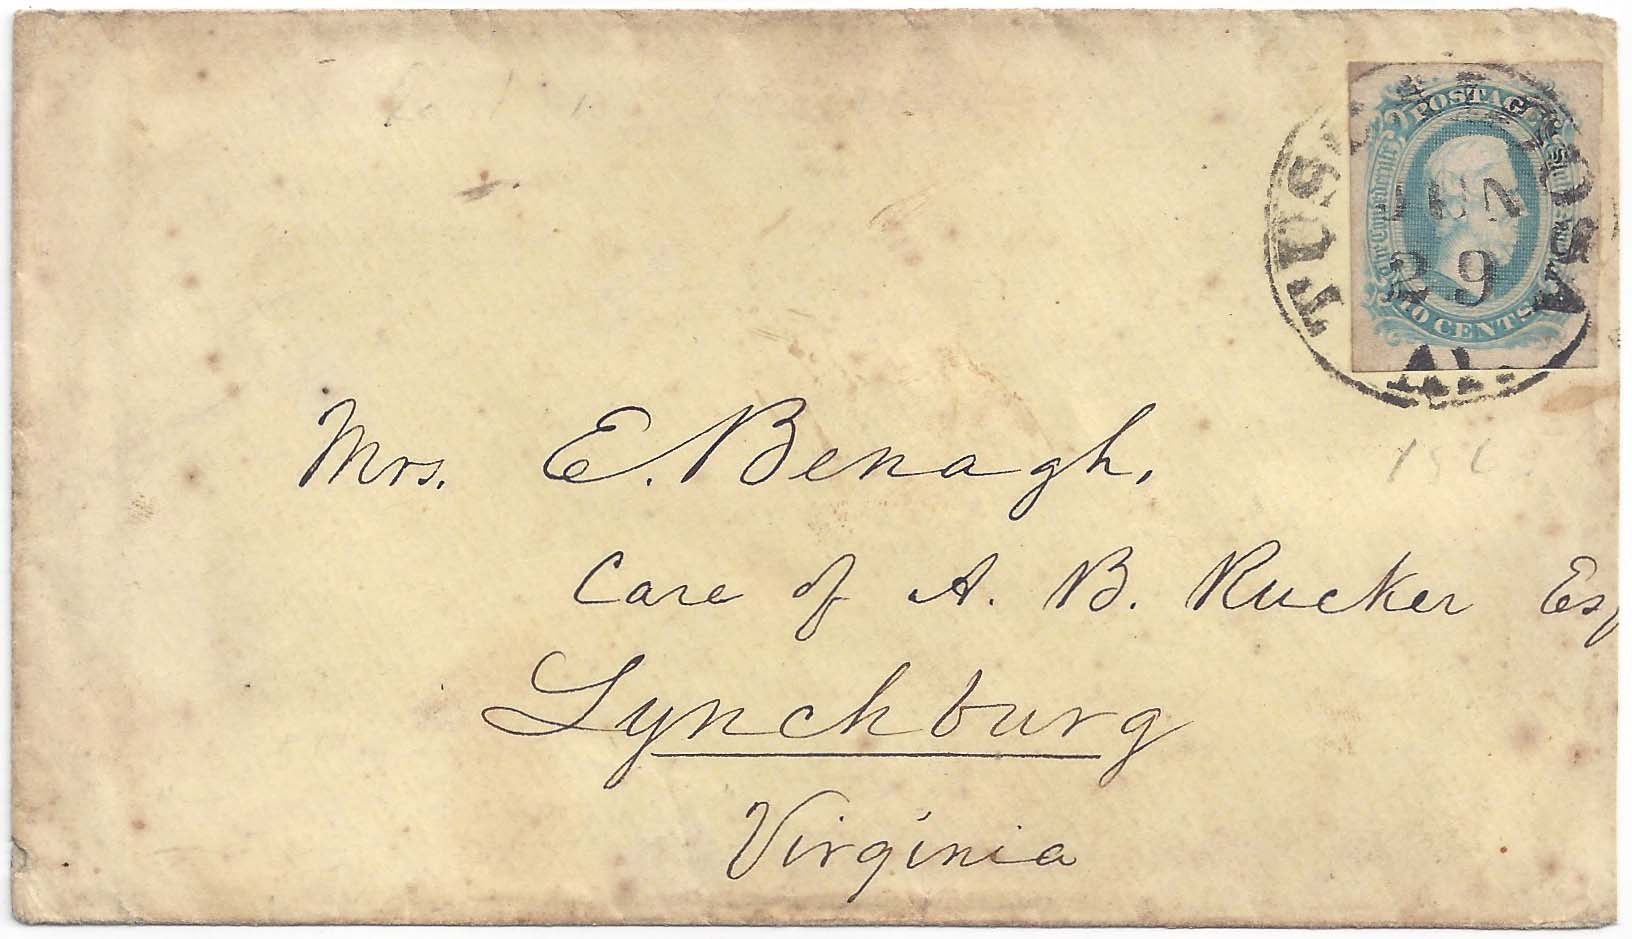 TUSCALOOSA
JUN
29
Al.
POSTAGE
The Confederate States
10 CENTS
Mrs. E. Benagh,
Care of A. B. Rucker Esq
Lynchburg
Virginia